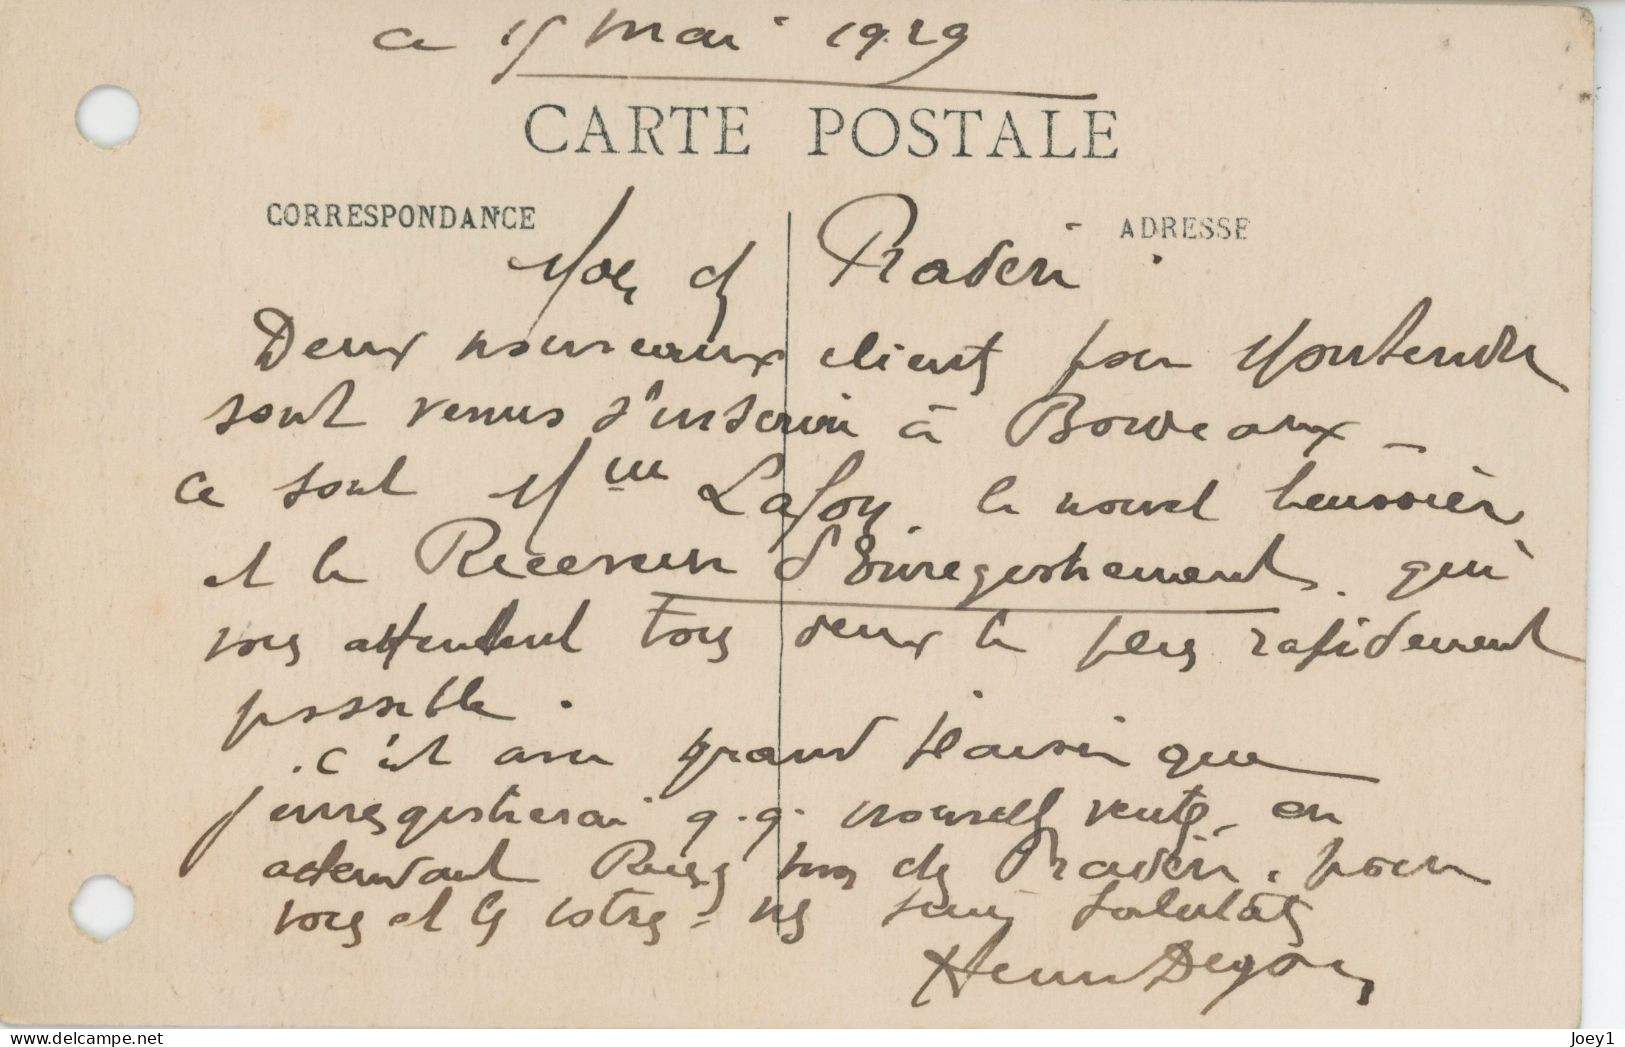 ce 15 mai 1929
CARTE POSTALE
CORRESPONDANCE
ADRESSE
de Praderi
Deux nouveaux clients pour Montendre
sont venus s'inscrire à Bordeaux –
ce sont Mme Lafon. le nouvel huissier
et le Receveur d'Enregistrement. qui
vous attendent tous deux le plus rapidement
possible.
c'est avec grand plaisir que
j'enregistrerai q.q. nouvelles ventes, en
attendant de Praderi. pour
vous et les votres = salutats
Henri
Joey1